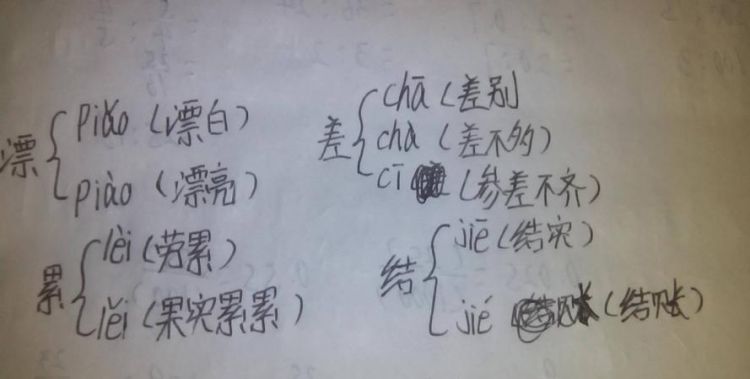 漂 piǎo (漂白)
piào (漂亮)
差 chā (差别
chà (差不多)
cī (参差不齐)
累 lèi (劳累)
lěi (果实累累)
结 jiē (结实)
jié (结账)